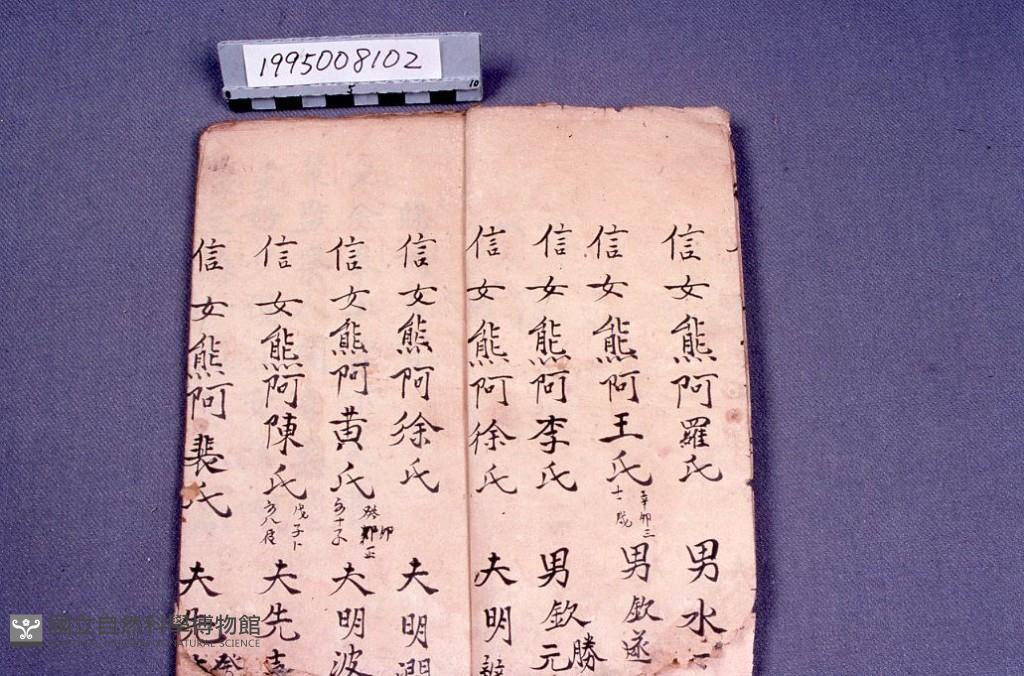 1995008102
5
10
信女熊阿羅氏 男水
信女熊阿王氏 辛卯三 男欽遂
信女熊阿李氏 男欽元勝
信女熊阿徐氏 夫明
信女熊阿徐氏 夫明潤
信女熊阿黃氏 夫明波
信女熊阿陳氏 戊子卜 夫先
信女熊阿裴氏 夫
國立自然科學博物館
NATURAL SCIENCE